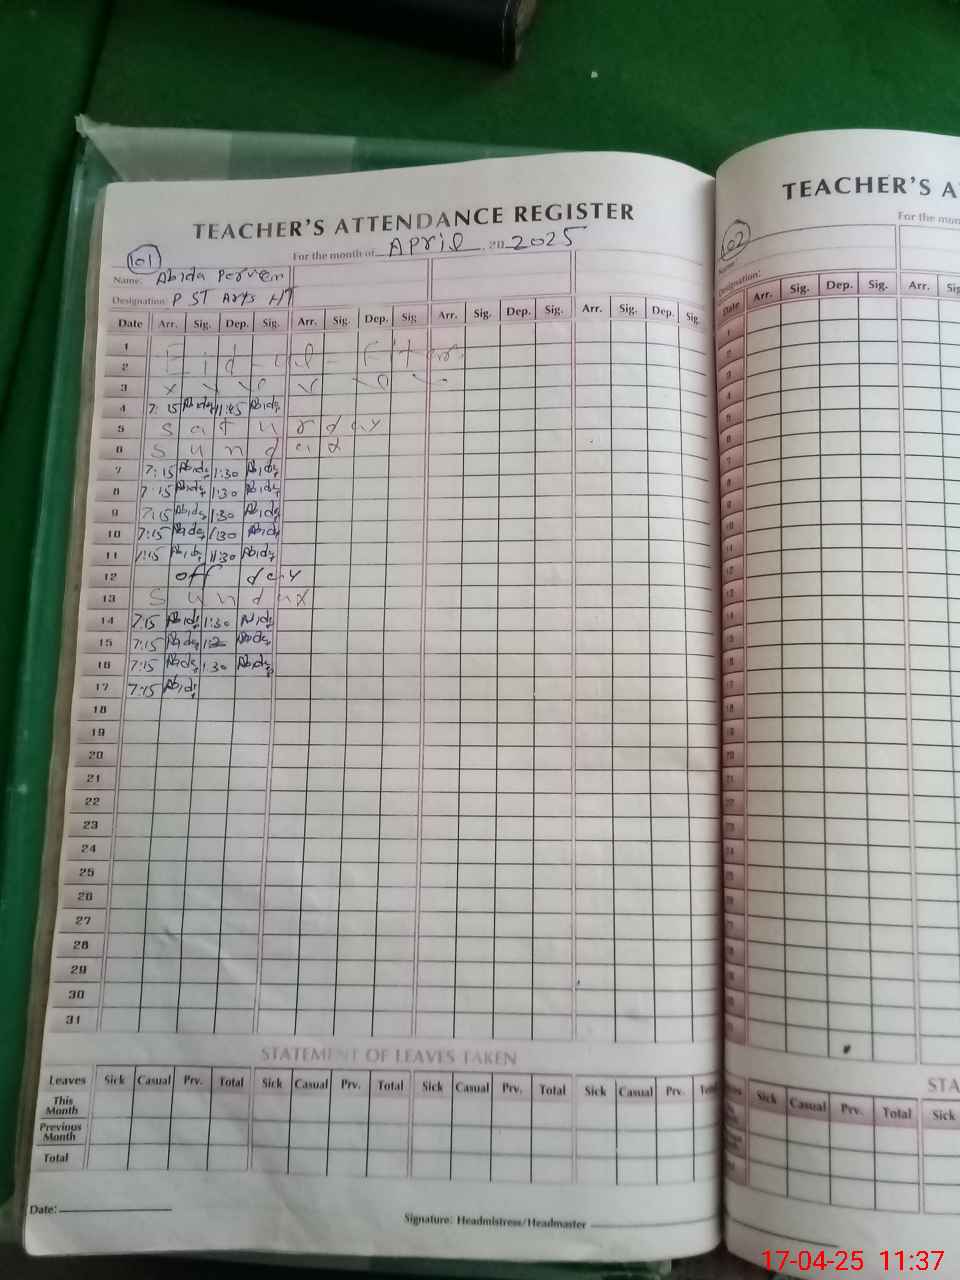 TEACHER'S ATTENDANCE REGISTER
101
For the month of April 20 2025
Name: Abida Perveen
Designation: P ST Arts H/T
Date Arr. Sig. Dep. Sig. Arr. Sig. Dep. Sig Arr. Sig. Dep. Sig. Arr. Sig. Dep. Sig.
1
2 Eid-ul-Fitar
3
4 7:15 Abida 11:45 Abida
5 Saturday
6
7 7:15 Abida 1:30 Abida
8 7:15 Abida 1:30 Abida
9 7:15 Abida 1:30 Abida
10 7:15 Abida 1:30 Abida
11 7:15 Abida 11:30 Abida
12 off day
13 Sunday
14 7:15 Abida 1:30 Abida
15 7:15 Abida Abida
16 7:15 Abida 1:30 Abida
17 7:15 Abida
18
19
20
21
22
23
24
25
26
27
28
29
30
31
STATEMENT OF LEAVES TAKEN
Leaves Sick Casual Prv. Total Sick Casual Prv. Total Sick Casual Prv. Total Sick Casual Prv.
This Month
Previous Month
Total
Date:
Signature: Headmistress/Headmaster
TEACHER'S A
For the mon
102
Name:
Designation:
Date Arr. Sig. Dep. Sig. Arr.
STA
Sick Casual Prv. Total Sick
17-04-25 11:37